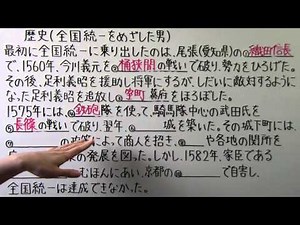 歴史(全国統一をめざした男)
最初に全国統一に乗り出したのは、尾張(愛知県)の織田信長
で、1560年、今川義元を桶狭間の戦いで破り、勢力をひろげた。
その後、足利義昭を援助し将軍にするが、しだいに敵対するように
なった足利義昭を追放し室町幕府をほろぼした。
1575年には、鉄砲隊を使って、騎馬隊中心の武田氏を
長篠の戦いで破り、翌年、城を築いた。その城下町には、
の政策によって商人を招き、や各地の関所を
の発展を図った。しかし、1582年、家臣である
むほんにあい、京都の で自害し、
全国統一は達成できなかった。